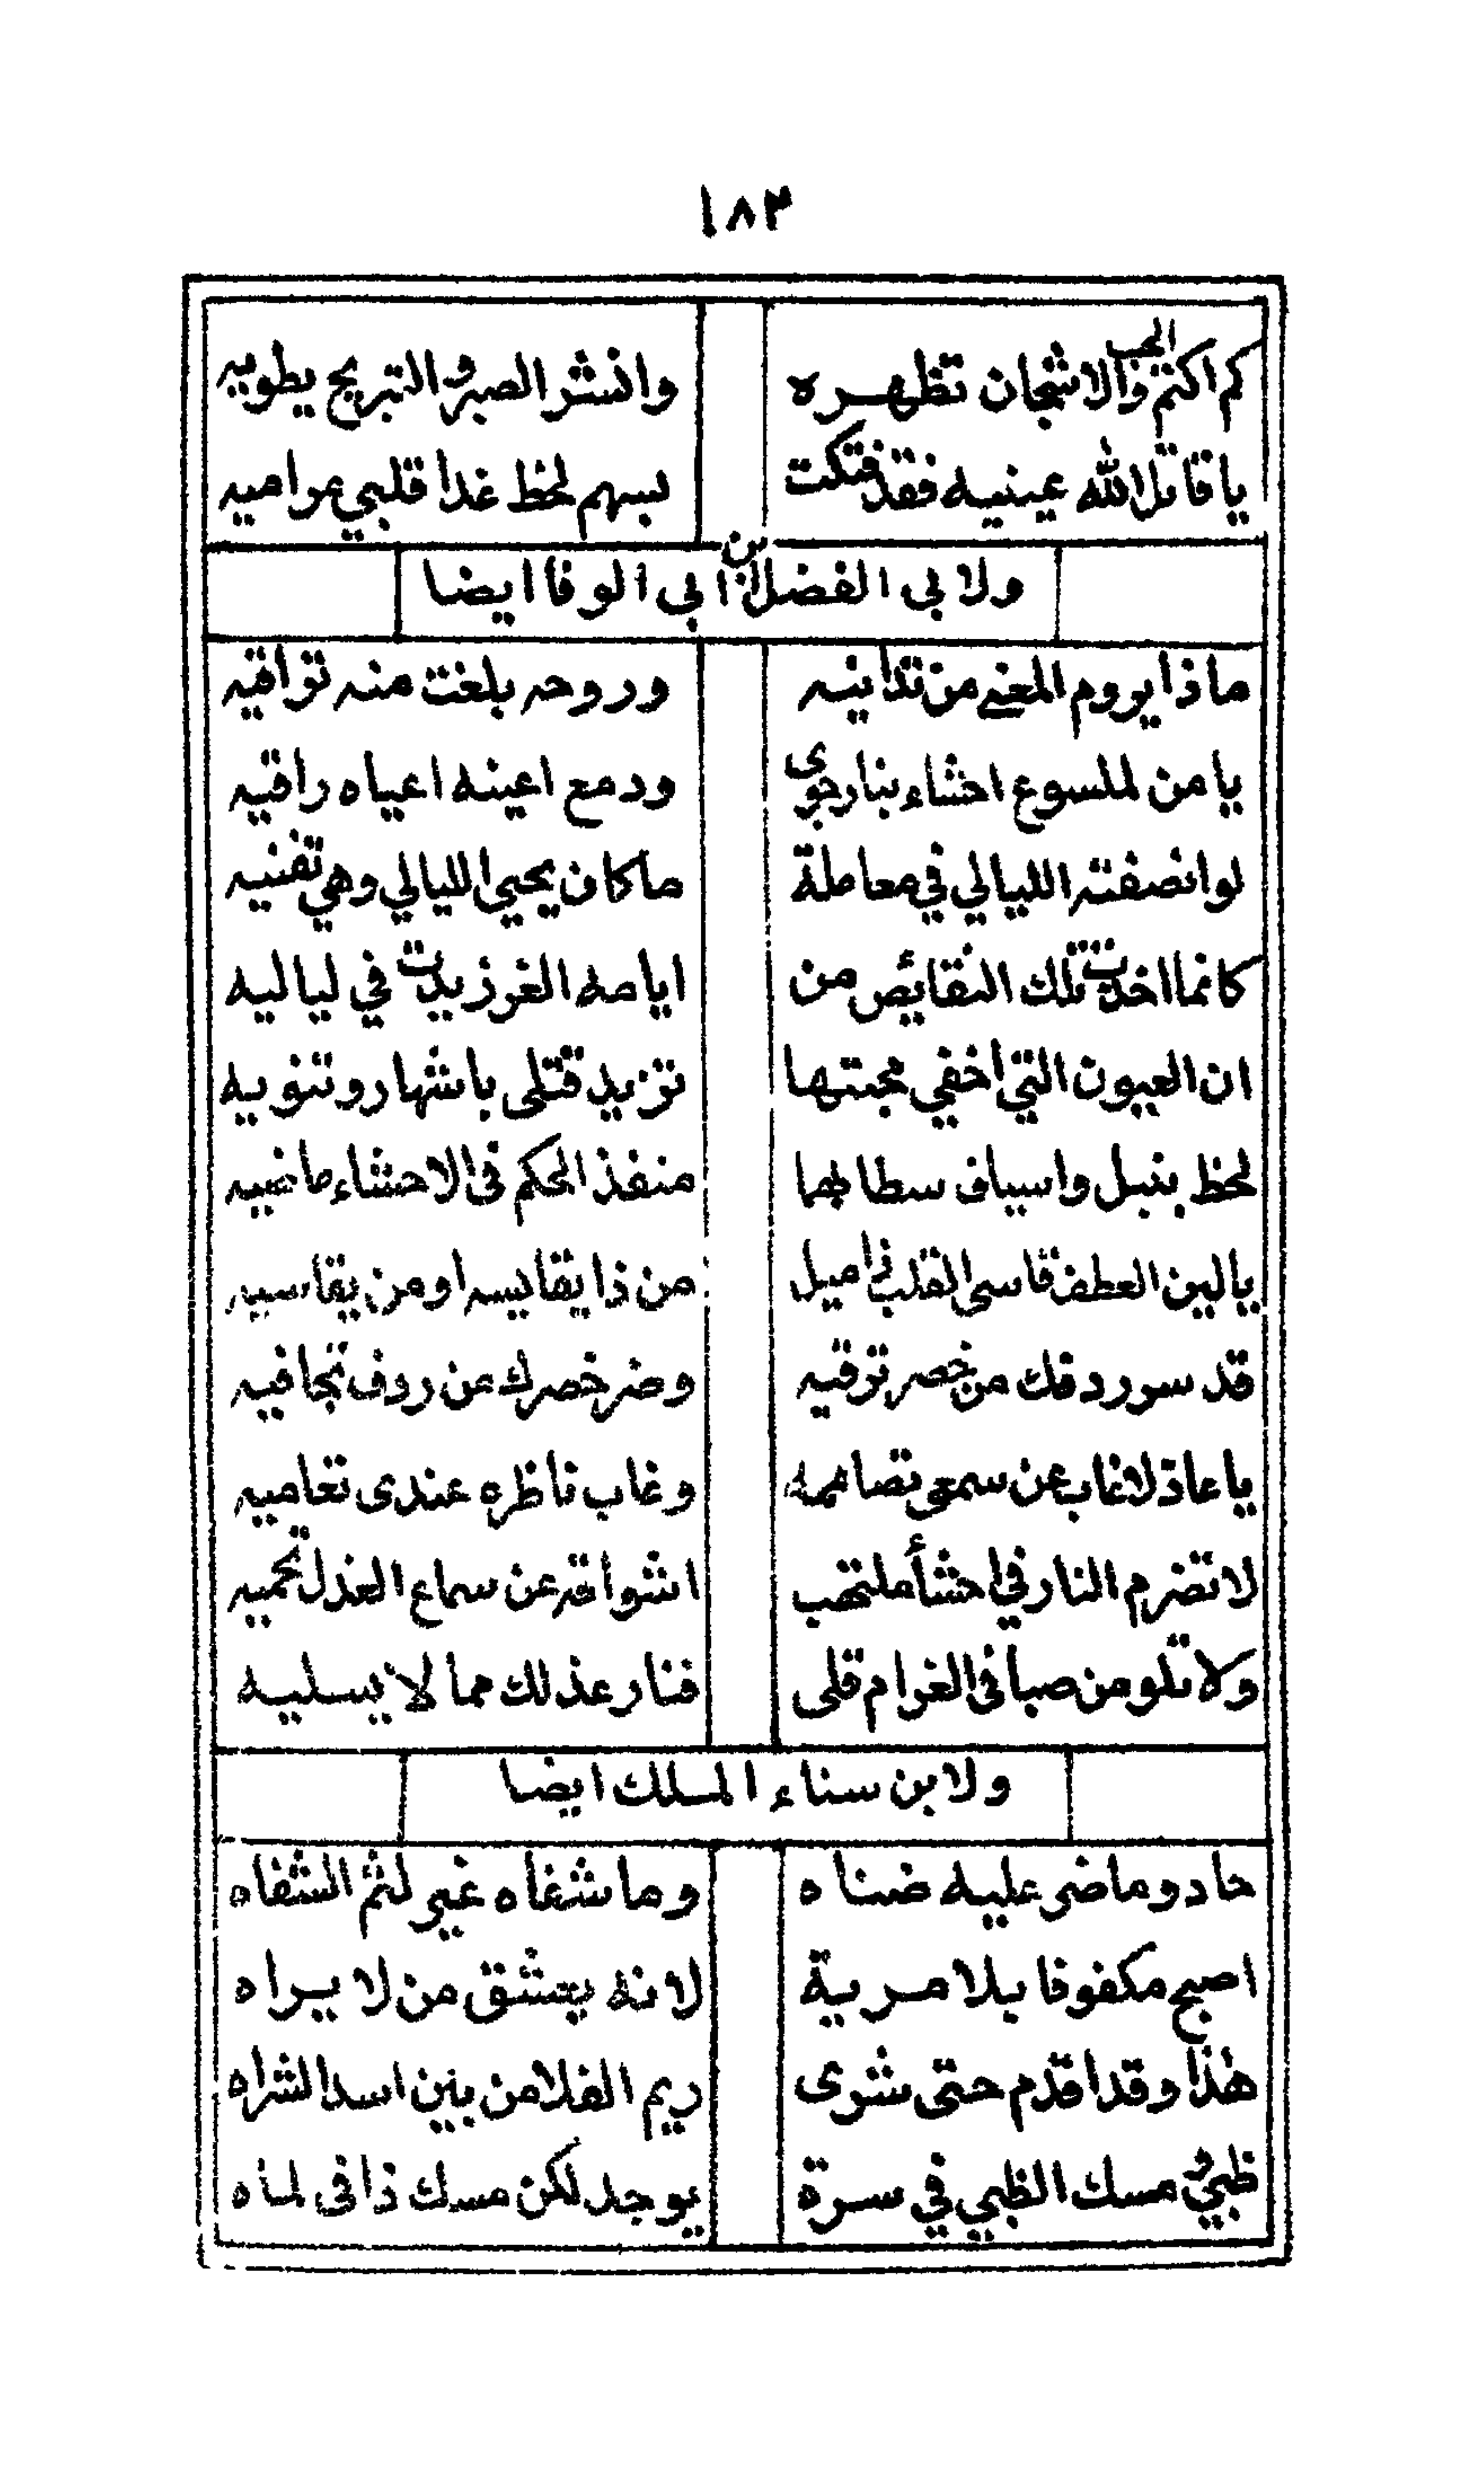 ١٨٣
كم اكتم الحب والاشجان تظهره وانشر الصبر والتبريح يطويه
يا قاتل الله عينيه فقد فتكت بسهم لحظ غدا قلبي مراميه
ولابي الفضل بن ابي الوفا ايضا
ماذا يروم المعنى من تدانيه وروحه بلغت منه تراقيه
يا من لملسوع احشاء بنار جوى ودمع اعينه اعياه راقيه
لو انصفته الليالي في معاملة ما كان يحيي الليالي وهي تفنيه
كانما اخذت تلك النقايص من ايامه الغر زيدت في لياليه
ان العيون التي اخفي محبتها تزيد قتلى باشهار وتنويه
لحظ بنبل واسياف سطا بهما منفذ الحكم في الاحشاء ماضيه
يا لين العطف قاسى القلب ذا ميل من ذا يقايسه او من يقاسيه
قد سر ردفك من خصر ترقيه وضر خصرك من ردف تجافيه
يا عاذلا غاب عن سمعى تصاممه وغاب ناظره عندى تعاميه
لا تضرم النار في احشأ ملتهب اشواقه عن سماع العذل تحميه
ولا تلو من صبا فى الغرام قلى فنار عذلك مما لا يسليه
ولابن سناء الملك ايضا
حاد وما ضر عليه ضناه وما شفاه غير لثم الشفاه
اصبح مكفوفا بلا مرية لانه يعشق من لا يراه
هذا وقد اقدم حتى شوى ريم الفلا من بين اسد الشراه
ظبي ومسك الظبي في سرة يوجد لكن مسك ذا فى لماه